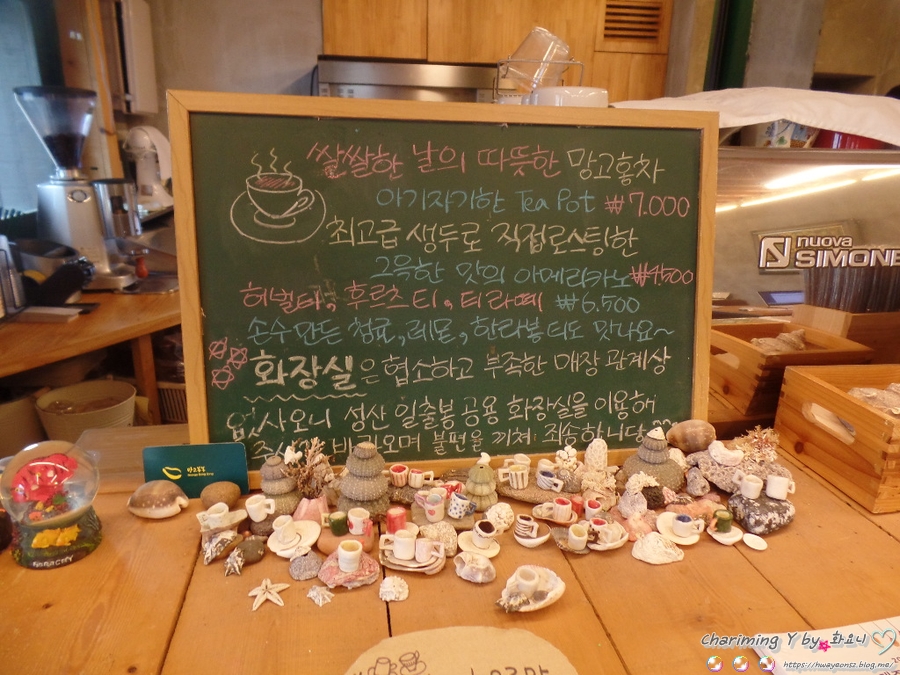 쌀쌀한 날의 따뜻한 망고홍차
아기자기한 Tea Pot ₩7.000
최고급 생두로 직접로스팅한
그윽한 맛의 아메리카노 ₩4500
허벌티, 후르츠티, 티라떼 ₩6.500
손수만든 청귤, 레몬, 한라봉티도 맛나요~
화장실은 협소하고 부족한 매장 관계상
없사오니 성산 일출봉 공용 화장실을 이용해
주시기 바라오며 불편을 끼쳐 죄송합니당
nuova
SIMONE
Chariming Y by 화요니
https://hwayeonsz.blog.me/